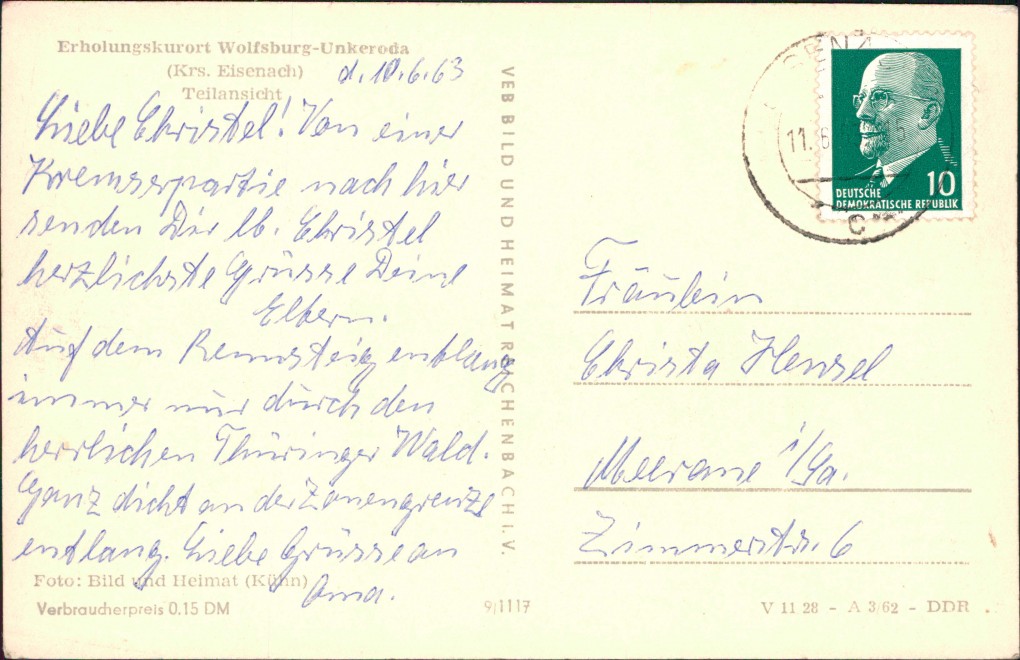 Erholungskurort Wolfsburg-Unkeroda
(Krs. Eisenach)
Teilansicht
d. 10.6.63
Liebe Christel! Von einer
Kremserpartie nach hier
senden Dir lb. Christel
herzlichste Grüsse Deine
Eltern.
Auf dem Rennsteig entlang
immer nur durch den
herrlichen Thüringer Wald.
Ganz dicht an der Zonengrenze
entlang. Liebe Grüsse an
Oma.
Foto: Bild und Heimat (Kühn)
Verbraucherpreis 0.15 DM
VEB BILD UND HEIMAT REICHENBACH I. V.
9/1117
11. 6
C
DEUTSCHE
DEMOKRATISCHE REPUBLIK
10
Fräulein
Christa Hensel
Meerane i/Sa.
Zimmerstr. 6
V 11 28 - A 3/62 - DDR